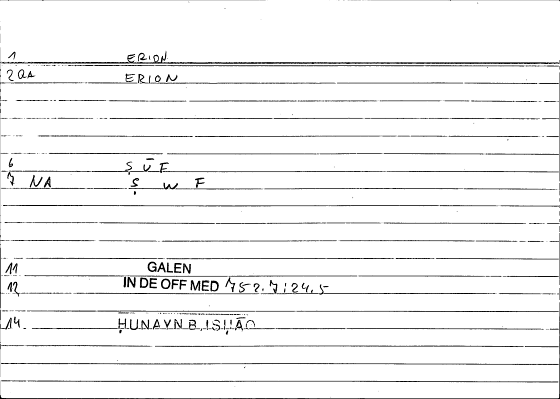 1 ERION
2 QA ERION
6 Ṣ Ū F
7 NA Ṣ W F
11 GALEN
12 IN DE OFF MED 752.7;24.5
14 ḤUNAYN B. ISḤĀQ